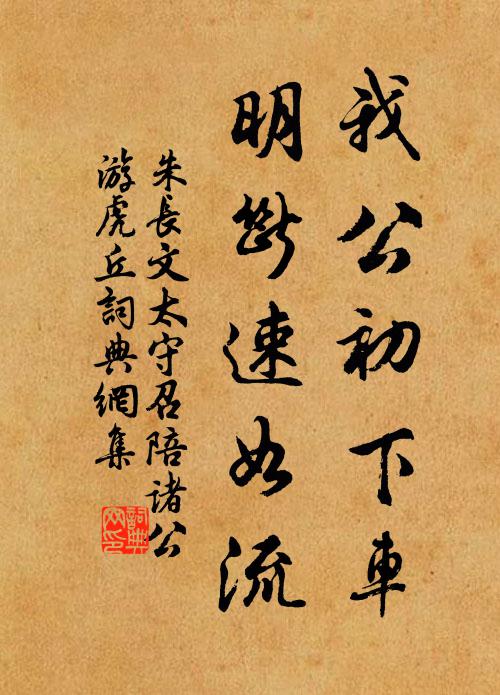 我公初下車
明斷速如流
朱長文太守召陪諸公
游虎丘詞典網集